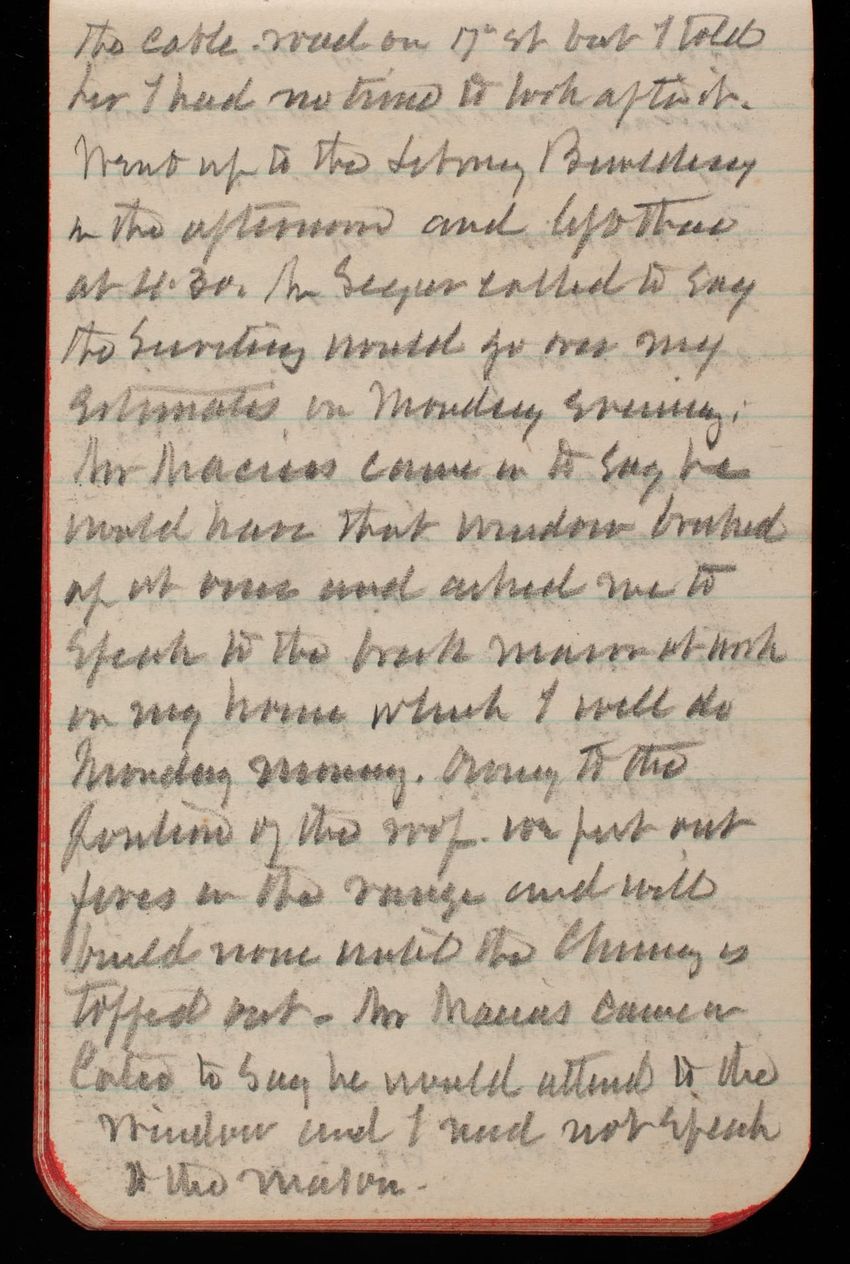 the cable road on 17" st but I told
her I had no time to look after it.
Went up to the Library Building
in the afternoon and left there
at 4.30. Mr Seeger called to say
the Secretary would go over my
Estimates on Monday evening.
Mr Macias came in to say he
would have that window bricked
up at once and asked me to
speak to the brick mason at work
on my house which I will do
Monday morning. Owing to the
position of the roof we put out
fires in the range and will
build none until the Chimney is
topped out. Mr Macias came in
later to say he would attend to the
window and I need not speak
to the mason.